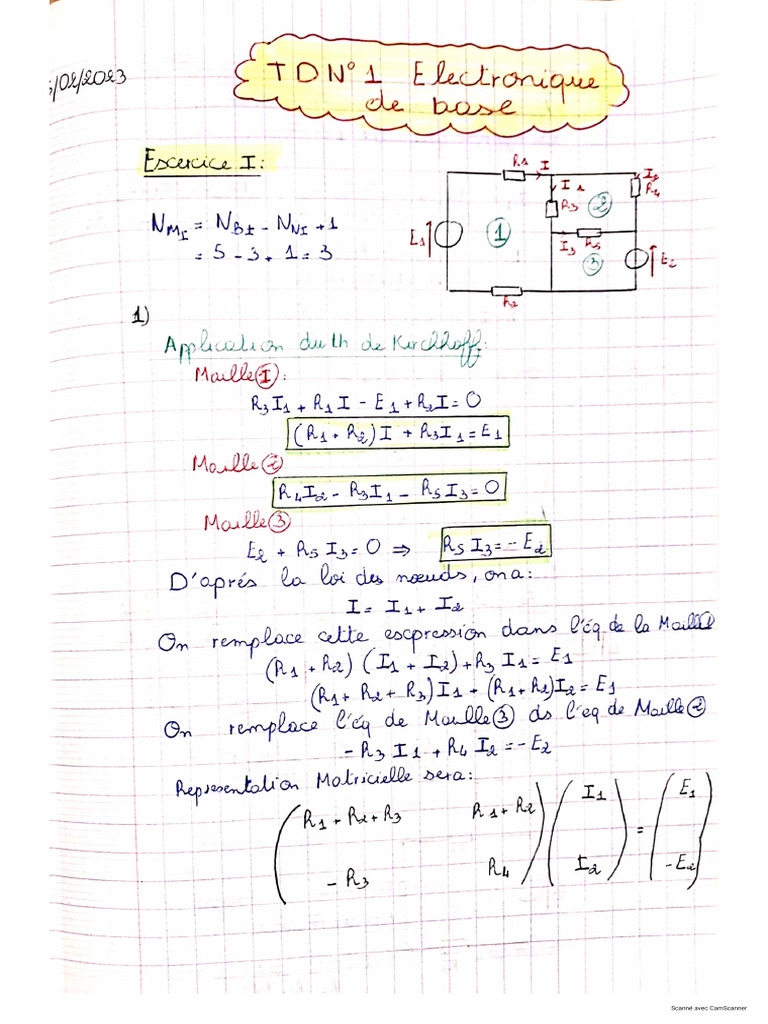 5/02/2023
TD N° 1 Electronique
de base
Excercice I :
N_MI = N_BI - N_NI + 1
= 5 - 3 + 1 = 3
R1 I
I1 I2
R3 2 R4
E1 1
I3 R5
3 E2
R2
1)
Application du th de Kirchhoff:
Maille (I) :
R3 I1 + R1 I - E1 + R2 I = 0
(R1 + R2) I + R3 I1 = E1
Maille (2)
R4 I2 - R3 I1 - R5 I3 = 0
Maille (3)
E2 + R5 I3 = 0 ⇒ R5 I3 = - E2
D'après la loi des nœuds, on a :
I = I1 + I2
On remplace cette expression dans l'éq de la Maille 1
(R1 + R2) (I1 + I2) + R3 I1 = E1
(R1 + R2 + R3) I1 + (R1 + R2) I2 = E1
On remplace l'éq de Maille (3) ds l'éq de Maille (2)
- R3 I1 + R4 I2 = - E2
Representation Matricielle sera :
( R1 + R2 + R3 R1 + R2 ) ( I1 ) = ( E1 )
( - R3 R4 ) ( I2 ) ( - E2 )
Scanné avec CamScanner